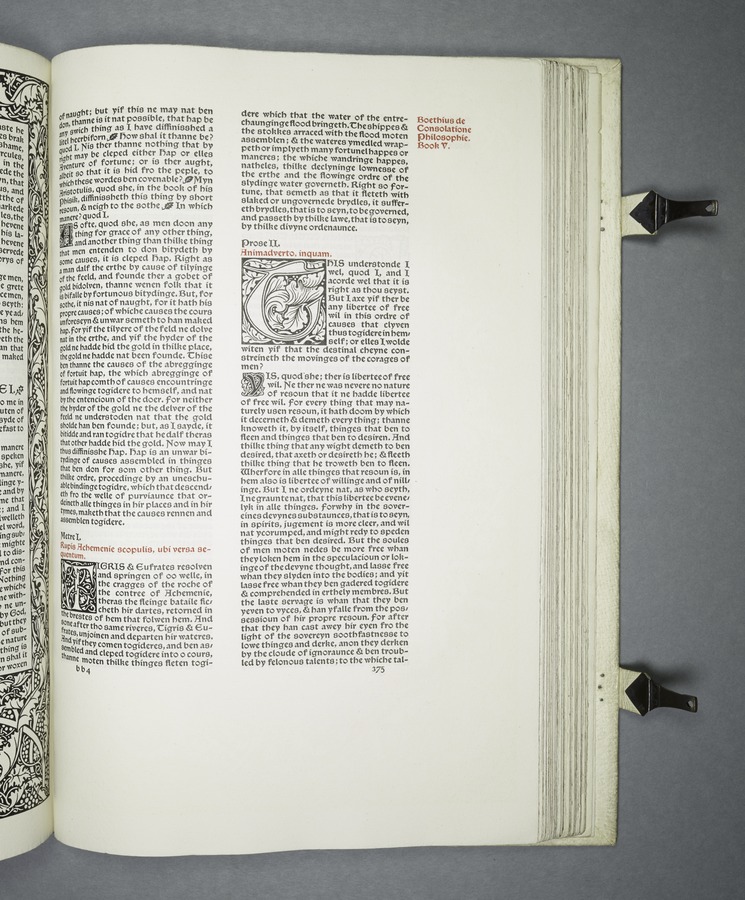 of naught; but yif this ne may nat ben
don, thanne is it nat possible, that hap be
any swich thing as I have diffinisshed a
litel heerbiforn. How shal it thanne be?
quod I. Nis ther thanne nothing that by
right may be cleped either Hap or elles
Aventure of fortune; or is ther aught,
albeit so that it is hid fro the peple, to
which these wordes ben covenable? Myn
Aristotulis, quod she, in the book of his
Phisik, diffinissheth this thing by short
resoun, & neigh to the sothe. In which
manere? quod I.
AS ofte, quod she, as men doon any
thing for grace of any other thing,
and another thing than thilke thing
that men entenden to don bitydeth by
some causes, it is cleped Hap. Right as
a man dalf the erthe by cause of tilyinge
of the feeld, and founde ther a gobet of
gold bidolven, thanne wenen folk that it
is bifalle by fortunous bitydinge. But, for
sothe, it nis nat of naught, for it hath his
propre causes; of whiche causes the cours
unforeseyn & unwar semeth to han maked
hap. For yif the tilyere of the feld ne dolve
nat in the erthe, and yif the hyder of the
gold ne hadde hid the gold in thilke place,
the gold ne hadde nat been founde. Thise
ben thanne the causes of the abregginge
of fortuit hap, the which abregginge of
fortuit hap comth of causes encountringe
and flowinge togidere to hemself, and nat
by the entencioun of the doer. For neither
the hyder of the gold ne the delver of the
feeld ne understoden nat that the gold
sholde han ben founde; but, as I sayde, it
bitidde and ran togidre that he dalf theras
that other hadde hid the gold. Now may I
thus diffinisshe Hap. Hap is an unwar bi-
tydinge of causes assembled in thinges
that ben don for som other thing. But
thilke ordre, procedinge by an uneschu-
able bindinge togidre, which that descend-
eth fro the welle of purviaunce that or-
deineth alle thinges in hir places and in hir
tymes, maketh that the causes rennen and
assemblen togidere.
Metre I.
Rupis Achemenie scopulis, ubi versa se-
quentum.
TIGRIS & Eufrates resolven
and springen of oo welle, in
the cragges of the roche of
the contree of Achemenie,
theras the fleinge bataile fic-
cheth hir dartes, retorned in
the brestes of hem that folwen hem. And
sone after tho same riveres, Tigris & Eu-
frates, unjoinen and departen hir wateres.
And yif they comen togideres, and ben as-
sembled and cleped togidere into o cours,
thanne moten thilke thinges fleten togi-
bb4
dere which that the water of the entre-
chaunginge flood bringeth. The shippes &
the stokkes arraced with the flood moten
assemblen; & the wateres ymedled wrap-
peth or implyeth many fortunel happes or
maneres; the whiche wandringe happes,
natheles, thilke declyninge lownesse of
the erthe and the flowinge ordre of the
slydinge water governeth. Right so for-
tune, that semeth as that it fleteth with
slaked or ungovernede brydles, it suffer-
eth brydles, that is to seyn, to be governed,
and passeth by thilke lawe, that is to seyn,
by thilke divyne ordenaunce.
Prose II.
Animadverto, inquam.
THIS understonde I
wel, quod I, and I
acorde wel that it is
right as thou seyst.
But I axe yif ther be
any libertee of free
wil in this ordre of
causes that clyven
thus togidere in hem-
self; or elles I wolde
witen yif that the destinal cheyne con-
streineth the movinges of the corages of
men?
YIS, quod she; ther is libertee of free
wil. Ne ther ne was nevere no nature
of resoun that it ne hadde libertee
of free wil. For every thing that may na-
turely usen resoun, it hath doom by which
it decerneth & demeth every thing; thanne
knoweth it, by itself, thinges that ben to
fleen and thinges that ben to desiren. And
thilke thing that any wight demeth to ben
desired, that axeth or desireth he; & fleeth
thilke thing that he troweth ben to fleen.
Wherfore in alle thinges that resoun is, in
hem also is libertee of willinge and of nill-
inge. But I ne ordeyne nat, as who seyth,
I ne graunte nat, that this libertee be evene-
lyk in alle thinges. Forwhy in the sover-
eines devynes substaunces, that is to seyn,
in spirits, jugement is more cleer, and wil
nat ycorumped, and might redy to speden
thinges that ben desired. But the soules
of men moten nedes be more free whan
they loken hem in the speculacioun or lok-
inge of the devyne thought, and lasse free
whan they slyden into the bodies; and yit
lasse free whan they ben gadered togidere
& comprehended in erthely membres. But
the laste servage is whan that they ben
yeven to vyces, & han yfalle from the pos-
sessioun of hir propre resoun. For after
that they han cast awey hir eyen fro the
light of the sovereyn soothfastnesse to
lowe thinges and derke, anon they derken
by the cloude of ignoraunce & ben troub-
led by felonous talents; to the whiche tal-
273
Boethius de
Consolatione
Philosophie.
Book V.